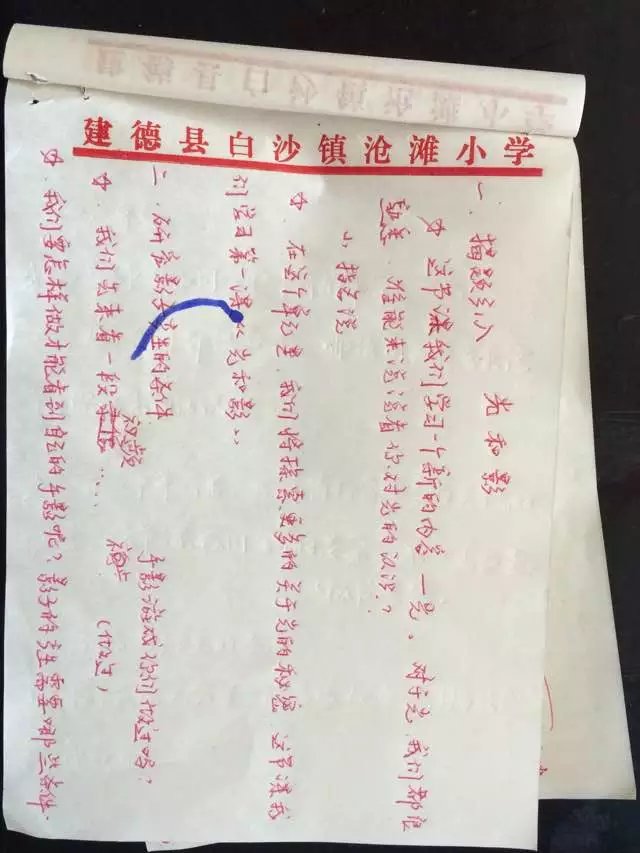 建德县白沙镇沧滩小学
光和影
一、揭题引入
☆ 这节课我们学习一个新的内容——光。对于光,我们都很
熟悉,谁能来说说看你对光的认识?
1、指名说
☆ 在这个单元里,我们将探索更多的关于光的秘密,这节课我
们学习第一课《光和影》
二、研究影子产生的条件
☆ 我们先来看一段视频…… 手影游戏你们做过吗?
(做过)
☆ 我们要怎样做才能看到自己的手影呢?影子的产生需要哪些条件